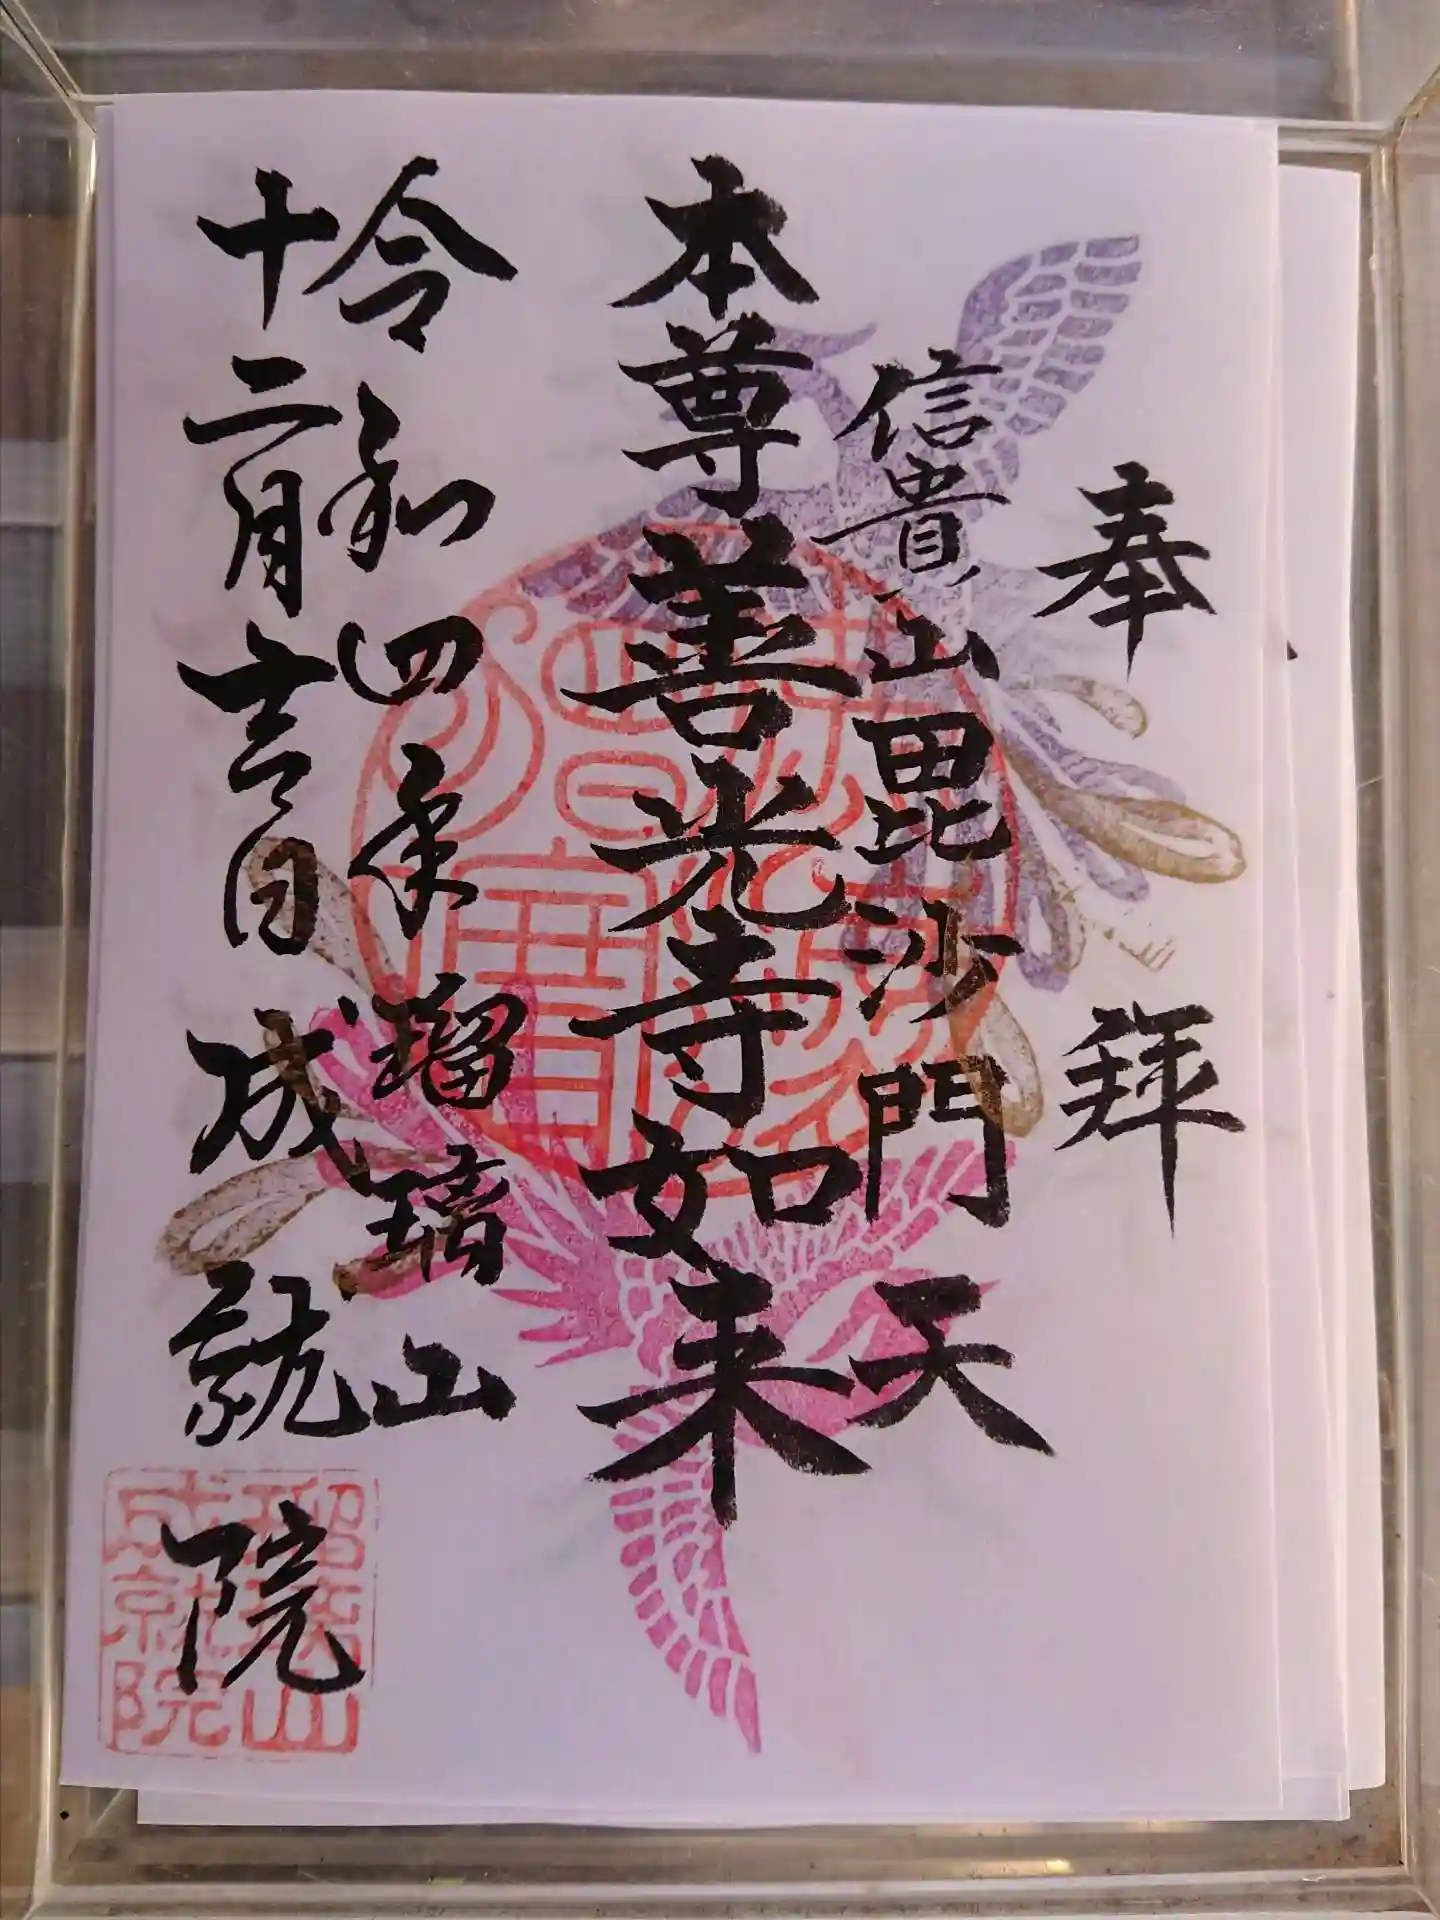 奉拝
信貴山毘沙門天
本尊善光寺如来
令和四年 瑠璃山
十二月吉日 成就院
瑠璃山
成就院